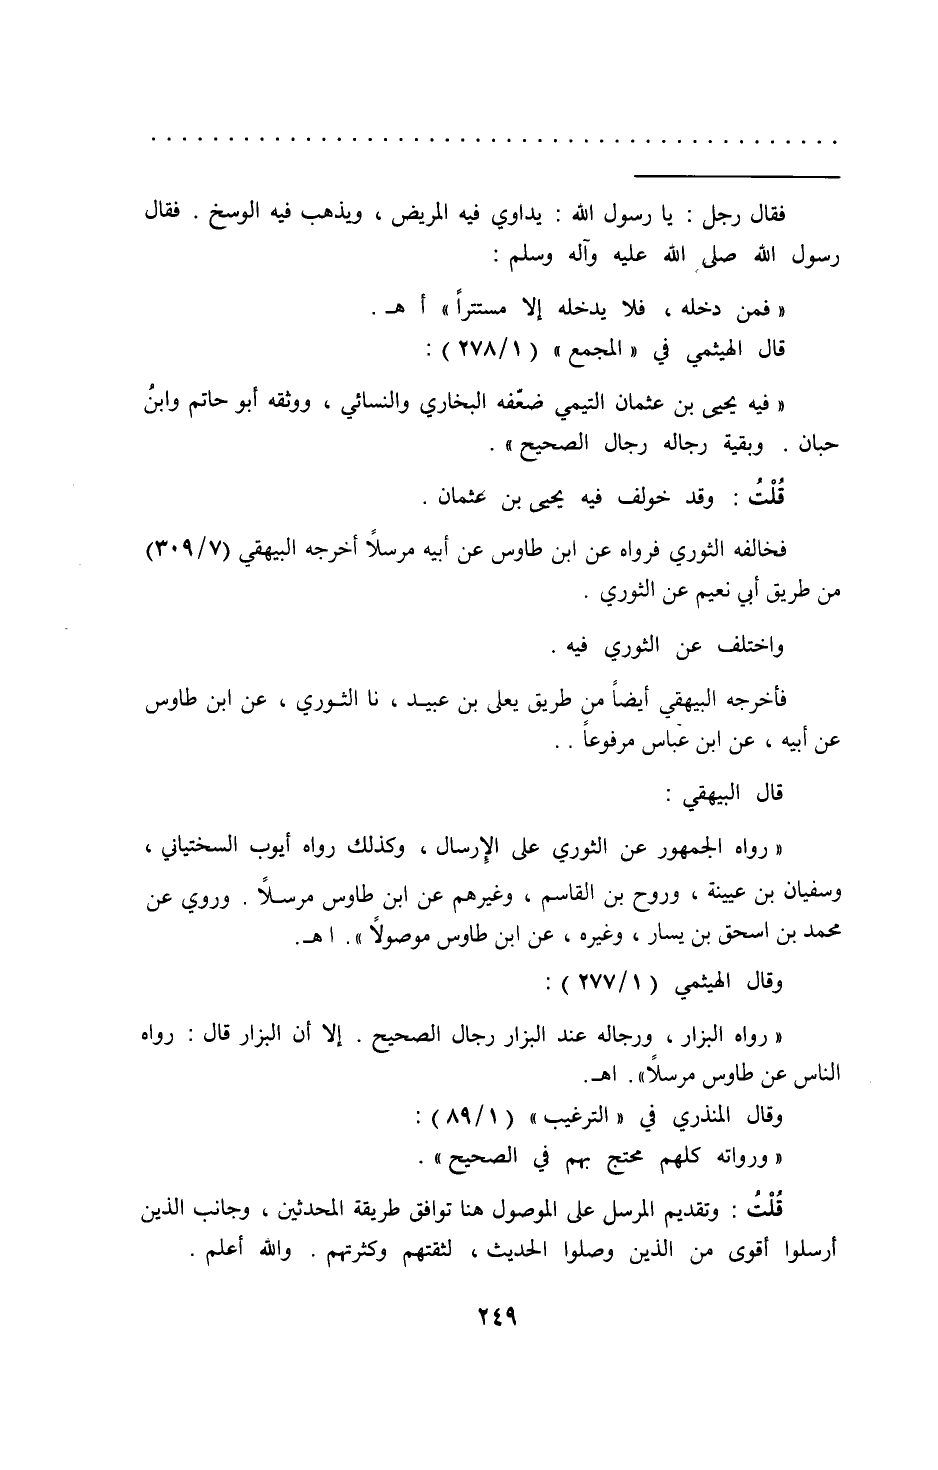 فقال رجل : يا رسول الله : يداوي فيه المريض ، ويذهب فيه الوسخ . فقال
رسول الله صلى الله عليه وآله وسلم :
« فمن دخله ، فلا يدخله إلا مستتراً » أ هـ .
قال الهيثمي في « المجمع » ( ٢٧٨/١ ) :
« فيه يحيى بن عثمان التيمي ضعّفه البخاري والنسائي ، ووثقه أبو حاتم وابنُ
حبان . وبقية رجاله رجال الصحيح » .
قُلْتُ : وقد خولف فيه يحيى بن عثمان .
فخالفه الثوري فرواه عن ابن طاوس عن أبيه مرسلاً أخرجه البيهقي (٣٠٩/٧)
من طريق أبي نعيم عن الثوري .
واختلف عن الثوري فيه .
فأخرجه البيهقي أيضاً من طريق يعلى بن عبيـد ، نا الثـوري ، عن ابن طاوس
عن أبيه ، عن ابن عباس مرفوعاً . .
قال البيهقي :
« رواه الجمهور عن الثوري على الإرسال ، وكذلك رواه أيوب السختياني ،
وسفيان بن عيينة ، وروح بن القاسم ، وغيرهم عن ابن طاوس مرسـلاً . وروي عن
محمد بن اسحق بن يسار ، وغيره ، عن ابن طاوس موصولاً » . ا هـ.
وقال الهيثمي ( ٢٧٧/١ ) :
« رواه البزار ، ورجاله عند البزار رجال الصحيح . إلا أن البزار قال : رواه
الناس عن طاوس مرسلاً» . اهـ.
وقال المنذري في « الترغيب » ( ٨٩/١ ) :
« ورواته كلهم محتج بهم في الصحيح » .
قُلْتُ : وتقديم المرسل على الموصول هنا توافق طريقة المحدثين ، وجانب الذين
أرسلوا أقوى من الذين وصلوا الحديث ، لثقتهم وكثرتهم . والله أعلم .
٢٤٩